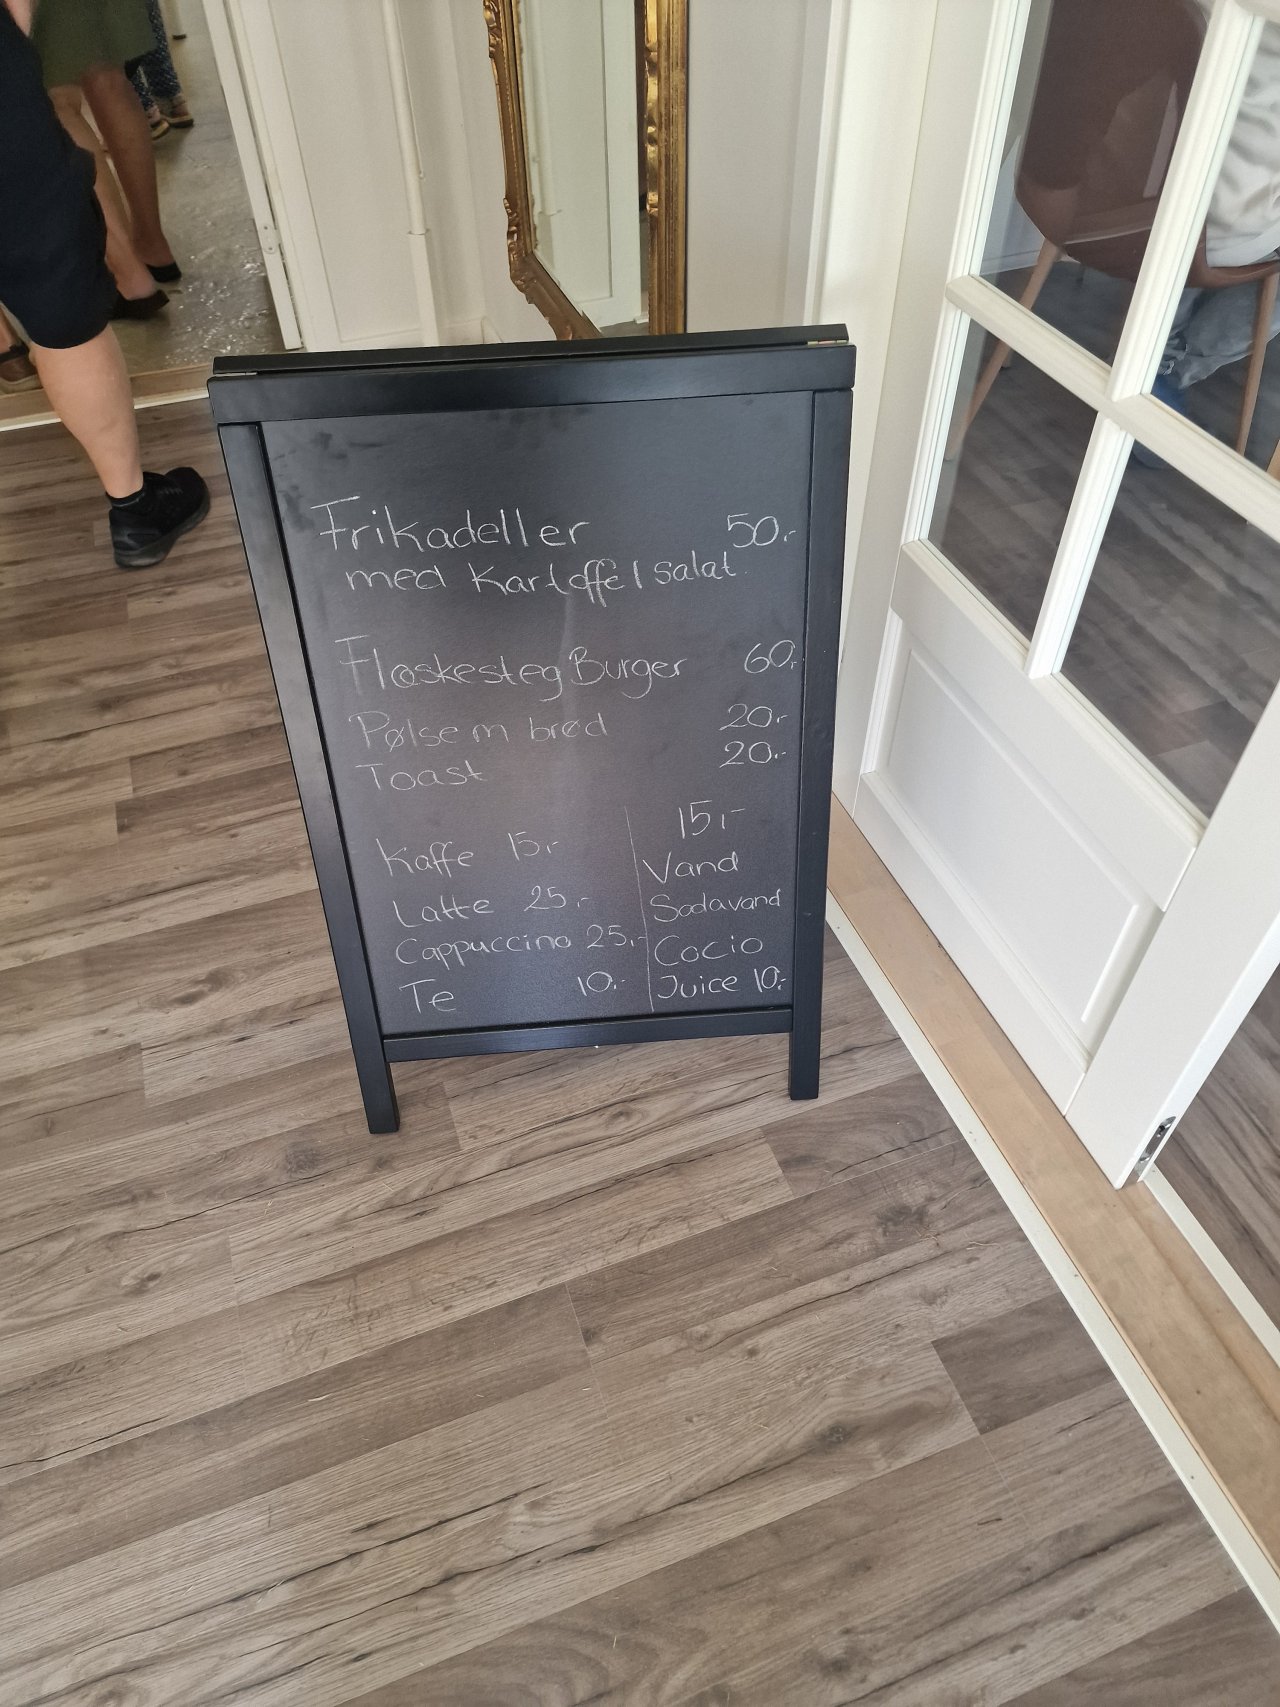 Frikadeller 50,-
med Kartoffelsalat
Flæskesteg Burger 60,-
Pølse m brød 20,-
Toast 20,-
Kaffe 15,-
Latte 25,-
Cappuccino 25,-
Te 10,-
15,-
Vand
Sodavand
Cocio
Juice 10,-